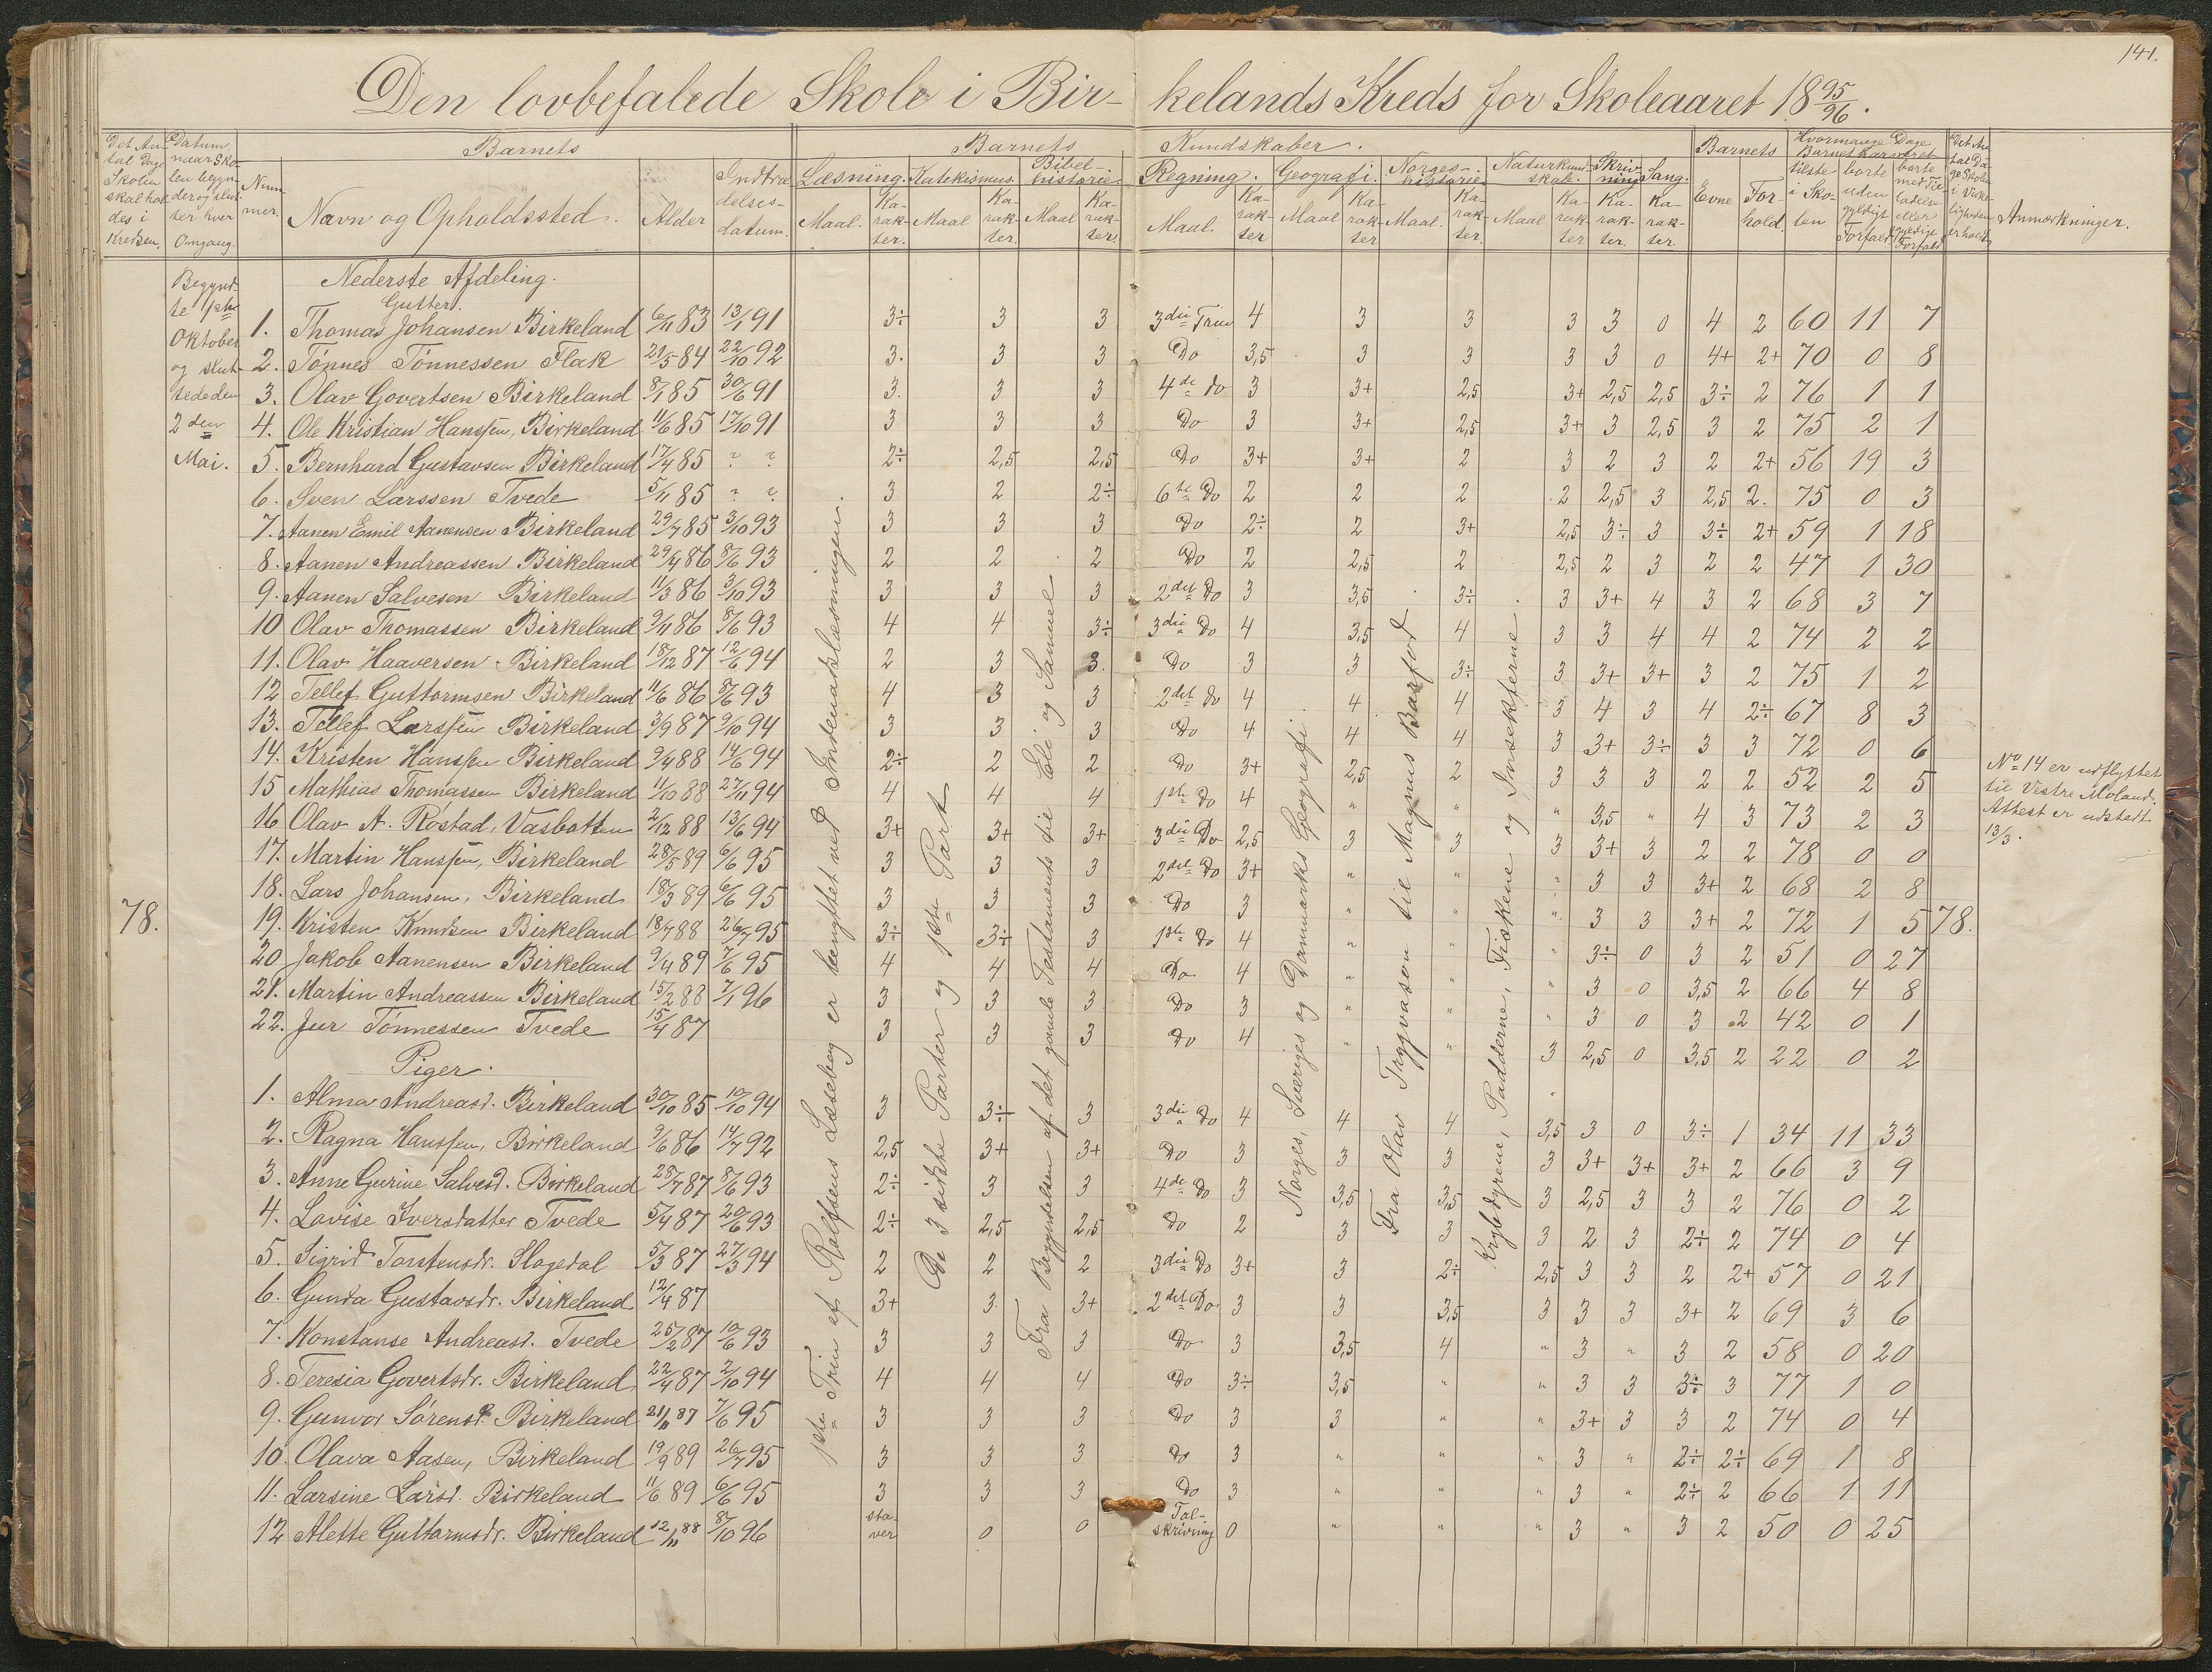 141.
Den lovbefalede Skole i Birkelands Kreds for Skoleaaret 18 95/96.
Det Antal Dage Skolen skal holdes i Kredsen.
Datum, naar Skolen begynder og slutter hver Omgang.
Barnets
Nummer.
Navn og Opholdssted.
Alder
Indtrædelsesdatum.
Barnets Kundskaber.
Læsning. Maal. Karakter.
Katekismus. Maal Karakter.
Bibelhistorie. Maal Karakter.
Regning. Maal. Karakter
Geografi. Maal Karakter
Norgeshistorie Maal. Karakter.
Naturkundskab. Maal Karakter
Skrivning Karakter.
Sang. Karakter.
Barnets
Evne
Forhold.
Hvormange Dage Barnet har været
tilstede i Skolen
borte uden gyldigt Forfald
borte med Tilladelse eller gyldigt Forfald
Det Antal Dage Skolen i Virkeligheden er holdt
Anmærkninger.
Begyndte 1ste Oktober og sluttede den 2den Mai.
78.
78.
Nederste Afdeling.
Gutter.
1. Thomas Johansen Birkeland 6/11 83 13/1 91 3÷ 3 3 3die Trin 4 3 3 3 3 0 4 2 60 11 7
2. Tönnes Tönnessen Flak 21/5 84 22/10 92 3. 3 3 Do 3,5 3 3 3 3 0 4+ 2+ 70 0 8
3. Olav Govertsen Birkeland 8/1 85 30/6 91 3. 3 3 4de do 3 3+ 2,5 3+ 2,5 2,5 3÷ 2 76 1 1
4. Ole Kristian Hanssen, Birkeland 11/6 85 17/10 91 3 3 3 Do 3 3+ 2,5 3+ 3 2,5 3 2 75 2 1
5. Bernhard Gustavsen Birkeland 17/4 85 ? ? 2÷ 2,5 2,5 Do 3+ 3+ 2 3 2 3 2 2+ 56 19 3
6. Sven Larssen Tvede 5/11 85 ? ? 3 2 2÷ 6te Do 2 2 2 2 2,5 3 2,5 2. 75 0 3
7. Aanen Emil Aanensen Birkeland 29/7 85 3/10 93 3 3 3 Do 2÷ 2 3+ 2,5 3÷ 3 3÷ 2+ 59 1 18
8. Aanen Andreassen Birkeland 29/4 86 8/6 93 2 2 2 Do 2 2,5 2 2,5 2 3 2 2 47 1 30
9. Aanen Salvesen Birkeland 11/3 86 3/10 93 3 3 3 2det Do 3 3,5 3÷ 3 3+ 4 3 2 68 3 7
10 Olav Thomassen Birkeland 9/11 86 8/6 93 4 4 3÷ 3die Do 4 3,5 4 3 3 4 4 2 74 2 2
11. Olav Haaversen Birkeland 18/12 87 12/6 94 2 3 3. Do 3 3 3÷ 3 3+ 3+ 3 2 75 1 2
12 Tellef Guttormsen Birkeland 11/6 86 8/6 93 4 3 3 2det do 4 4 4 3 4 3 4 2÷ 67 8 3
13. Tellef Larssen Birkeland 3/9 87 9/10 94 3 3 3 Do 4 4 4 3 3+ 3÷ 3 3 72 0 6
14. Kristen Hanssen Birkeland 9/4 88 14/6 94 2÷ 2 2 Do 3+ 2,5 2 3 3 3 2 2 52 2 5
15 Mathias Thomassen Birkeland 11/10 88 27/11 94 4 4 4 1ste do 4 " " " 3,5 " 4 3 73 2 3
16 Olav A. Röstad, Vasbotten 2/12 88 13/6 94 3+ 3+ 3+ 3die Do 2,5 3 3 3 3+ 3 2 2 78 0 0
17. Martin Hanssen, Birkeland 28/5 89 6/6 95 3 3 3 2det Do 3+ " " " 3 3 3+ 2 68 2 8
18. Lars Johansen, Birkeland 18/3 89 6/6 95 3 3 3 Do 3 " " " 3 3 3+ 2 72 1 5
19. Kristen Knudsen Birkeland 18/7 88 26/7 95 3÷ 3÷ 3 1ste do 4 " " " 3÷ 0 3 2 51 0 27
20 Jakob Aanensen Birkeland 9/4 89 7/6 95 4 4 4 Do 4 " " " 3 0 3,5 2 66 4 8
21. Martin Andreassen Birkeland 15/2 88 7/1 96 3 3 3 Do 3 " " " 3 0 3 2 42 0 1
22. Juer Tönnessen Tvede 15/4 87 3 3 3 Do 4 " " 3 2,5 0 3,5 2 22 0 2
Piger.
1. Alma Andreasd. Birkeland 30/10 85 10/10 94 3 3÷ 3 3die Do 4 4 4 3,5 3 0 3÷ 1 34 11 33
2. Ragna Hanssen, Birkeland 9/6 86 14/7 92 2,5 3+ 3+ Do 3 3 3 3 3+ 3+ 3+ 2 66 3 9
3. Anne Gurine Salvesd. Birkeland 28/7 87 8/6 93 2÷ 3 3 4de Do 3 3,5 3,5 3 2,5 3 3 2 76 0 2
4. Lovise Iversdatter Tvede 5/4 87 20/6 93 2÷ 2,5 2,5 Do 2 3 3 3 2 3 2÷ 2 74 0 4
5. Sigrid Torstensdr. Slogedal 5/3 87 27/3 94 2 2 2 3die Do 3+ 3 2÷ 2,5 3 3 2 2+ 57 0 21
6. Gunda Gustavsdr. Birkeland 12/4 87 3+ 3. 3+ 2det Do 3 3 3,5 3 3 3 3+ 2 69 3 6
7. Konstanse Andreasd. Tvede 25/2 87 10/6 93 3 3 3 Do 3 3,5 4 " 3 " 3 2 58 0 20
8. Teresia Govertsdr. Birkeland 22/4 87 2/10 94 4 4 4 Do 3÷ 3,5 " " 3 3 3÷ 3 77 1 0
9. Gunvor Sörensd. Birkeland 21/11 87 7/6 95 3 3 3 Do 3 3 " " 3+ 3 3 2 74 0 4
10. Olava Aasen, Birkeland 19/9 89 26/7 95 3 3 3 do 3 " " " 3 " 2÷ 2÷ 69 1 8
11. Larsine Larsd. Birkeland 11/6 89 6/6 95 3 3 3 Do 3 " " " 3 " 2÷ 2 66 1 11
12 Alette Guttormsdr. Birkeland 12/11 88 8/10 96 staver 0 0 Talskrivning 0 " " " 3 " 3 2 50 0 25
1ste Trin af Rolfsens Læsebog er benyttet ved Indenadslæsningen.
De 3 sidste Parter og 1ste Part
Fra Begyndelsen af det gamle Testamente til Eli og Samuel.
Norges, Sveriges og Danmarks Geografi.
Fra Olav Trygvason til Magnus Barfod.
Krybdyrene, Padderne, Fiskene og Insekterne.
No 14 er udflyttet
til Vestre Moland.
Attest er udstedt
13/3.